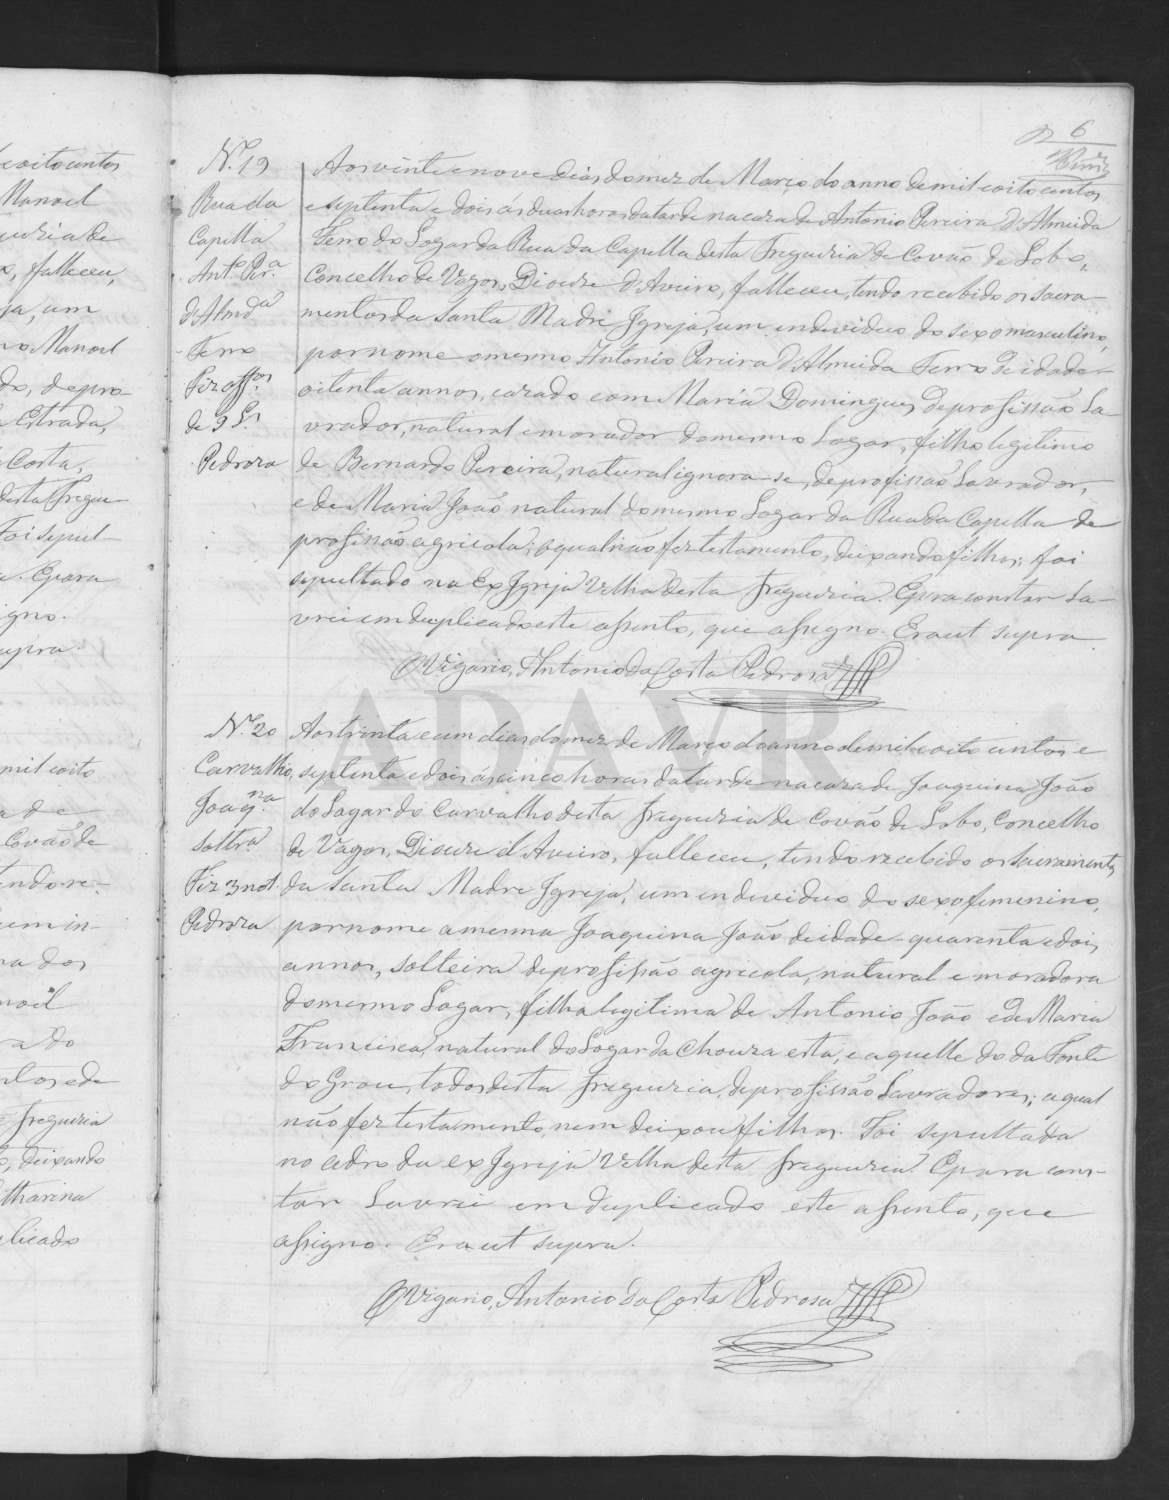 6
N.º 19
Rua da
Capella
Ant.º Per.ª
d'Almd.ª
Ferro
Fiz off.os
de 9 L.s
Pedroza
Aos vinte e nove dias do mez de Março do anno de mil e oito centos
e septenta e dois ás duas horas da tarde na caza de Antonio Pereira d'Almeida
Ferro do Logar da Rua da Capella desta Freguezia de Covão de Lobo,
Concelho de Vagos, Diocese d'Aveiro, falleceu, tendo recebido os sacra-
mentos da Santa Madre Igreja, um individuo do sexo masculino,
por nome o mesmo Antonio Pereira d'Almeida Ferro de idade
oitenta annos, cazado com Maria Domingues, de profissão La-
vrador, natural e morador do mesmo Logar, filho legitimo
de Bernardo Pereira, natural ignora-se, de profissão Lavrador,
e de Maria João natural do mesmo Logar da Rua da Capella de
profissão agricola; o qual não fez testamento, deixando filhos; foi
sepultado na Ex Igreja Velha desta freguezia. E para constar La-
vrei em duplicado este assento, que assigno. Era ut supra.
O Vigario, Antonio da Costa Pedrosa
N.º 20
Carvalho,
Joaq.na
Solt.ra
Fiz 3 not.
Pedroza
Aos trinta e um dias do mez de Março do anno de mil e oito centos e
septenta e dois ás cinco horas da tarde na caza de Joaquina João
do Logar do Carvalho desta freguezia de Covão de Lobo, Concelho
de Vagos, Diocese d'Aveiro, falleceu, tendo recebido os sacramentos
da Santa Madre Igreja, um individuo do sexo femenino,
por nome a mesma Joaquina João de idade quarenta e dois
annos, solteira de profissão agricola, natural e moradora
do mesmo Logar, filha legitima de Antonio João e de Maria
Francisca, natural do Logar da Chouza esta, e aquelle do da Fonte
do Grou, todos desta freguezia, de profissão Lavradores; a qual
não fez testamento, nem deixou filhos. Foi sepultada
no adro da ex Igreja Velha desta freguezia. E para cons-
tar Lavrei em duplicado este assento, que
assigno. Era ut supra.
O Vigario, Antonio da Costa Pedrosa
ADAVR